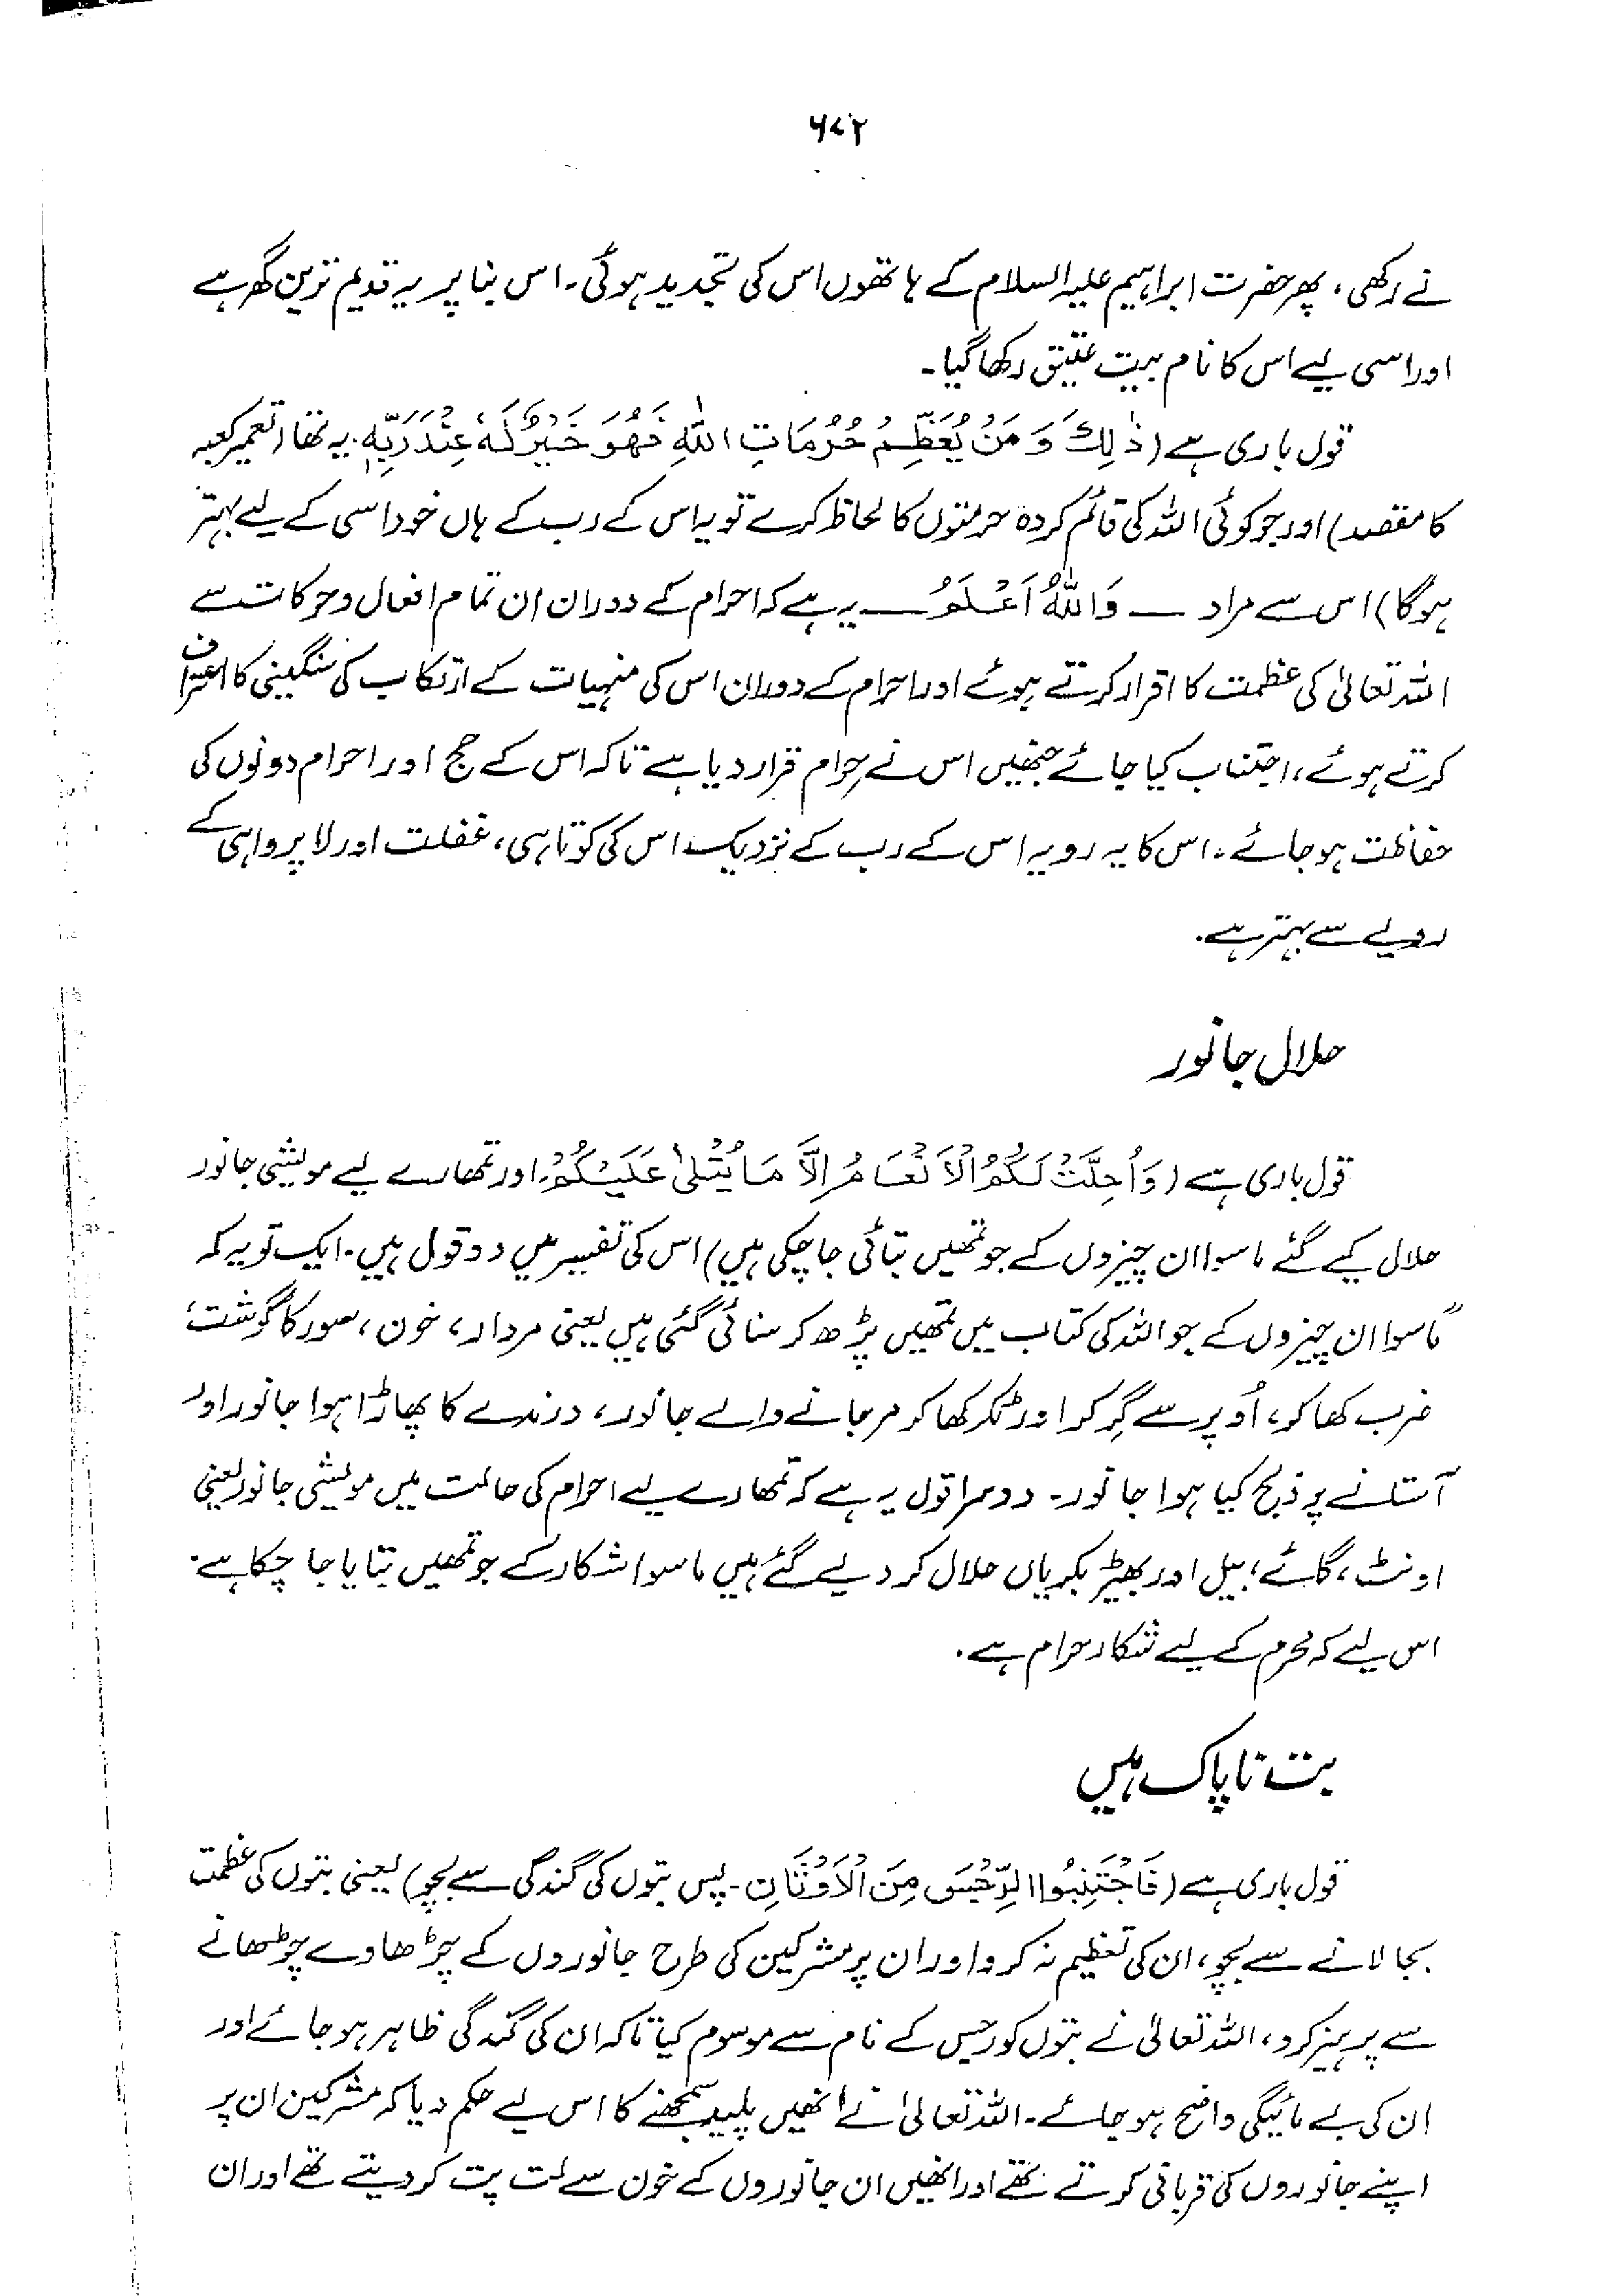 ۶۷۲
نے رکھی، پھر حضرت ابراہیم علیہ السلام کے ہاتھوں اس کی تجدید ہوئی۔ اس بنا پر یہ قدیم ترین گھر ہے
اور اسی لیے اس کا نام بیت عتیق رکھا گیا۔
قول باری ہے (ذٰلِكَ وَ مَنْ يُّعَظِّمْ حُرُمَاتِ اللّٰهِ فَهُوَ خَيْرٌ لَّهٗ عِنْدَ رَبِّهٖ۔ یہ تھا (تعمیر کعبہ
کا مقصد) اور جو کوئی اللہ کی قائم کردہ حرمتوں کا لحاظ کرے تو یہ اس کے رب کے ہاں خود اسی کے لیے بہتر
ہوگا) اس سے مراد — وَاللّٰهُ اَعْلَمُ — یہ ہے کہ احرام کے دوران ان تمام افعال و حرکات سے
اللہ تعالیٰ کی عظمت کا اقرار کرتے ہوئے اور احرام کے دوران اس کی منہیات کے ارتکاب کی سنگینی کا اعتراف
کرتے ہوئے، اجتناب کیا جائے جنھیں اس نے حرام قرار دیا ہے تاکہ اس کے حج اور احرام دونوں کی
حفاظت ہو جائے۔ اس کا یہ رویہ اس کے رب کے نزدیک اس کی کوتاہی، غفلت اور لاپرواہی کے
رویے سے بہتر ہے۔
حلال جانور
قول باری ہے (وَاُحِلَّتْ لَكُمُ الْاَنْعَامُ اِلَّا مَا يُتْلٰى عَلَيْكُمْ۔ اور تمھارے لیے مویشی جانور
حلال کیے گئے ماسوا ان چیزوں کے جو تمھیں بتائی جا چکی ہیں) اس کی تفسیر میں دو قول ہیں۔ ایک تو یہ کہ
”ماسوا ان چیزوں کے جو اللہ کی کتاب میں تمھیں پڑھ کر سنائی گئی ہیں یعنی مردار، خون، سور کا گوشت،
ضرب کھا کر، اُوپر سے گِر کر اور ٹکر کھا کر مر جانے والے جانور، درندے کا پھاڑا ہوا جانور اور
آستانے پر ذبح کیا ہوا جانور۔ دوسرا قول یہ ہے کہ تمھارے لیے احرام کی حالت میں مویشی جانور یعنی
اونٹ، گائے، بیل اور بھیڑ بکریاں حلال کر دیے گئے ہیں ماسوا شکار کے جو تمھیں بتایا جا چکا ہے۔
اس لیے کہ محرم کے لیے شکار حرام ہے۔
بت ناپاک ہیں
قول باری ہے (فَاجْتَنِبُوا الرِّجْسَ مِنَ الْاَوْثَانِ۔ پس بتوں کی گندگی سے بچو) یعنی بتوں کی عظمت
بجا لانے سے بچو، ان کی تعظیم نہ کرو اور ان پر مشرکین کی طرح جانوروں کے چڑھاوے چڑھانے
سے پرہیز کرو، اللہ تعالیٰ نے بتوں کو رجس کے نام سے موسوم کیا تاکہ ان کی گندگی ظاہر ہو جائے اور
ان کی بے مائیگی واضح ہو جائے۔ اللہ تعالیٰ نے انھیں پلید سمجھنے کا اس لیے حکم دیا کہ مشرکین ان پر
اپنے جانوروں کی قربانی کرتے تھے اور انھیں ان جانوروں کے خون سے لت پت کر دیتے تھے اور ان